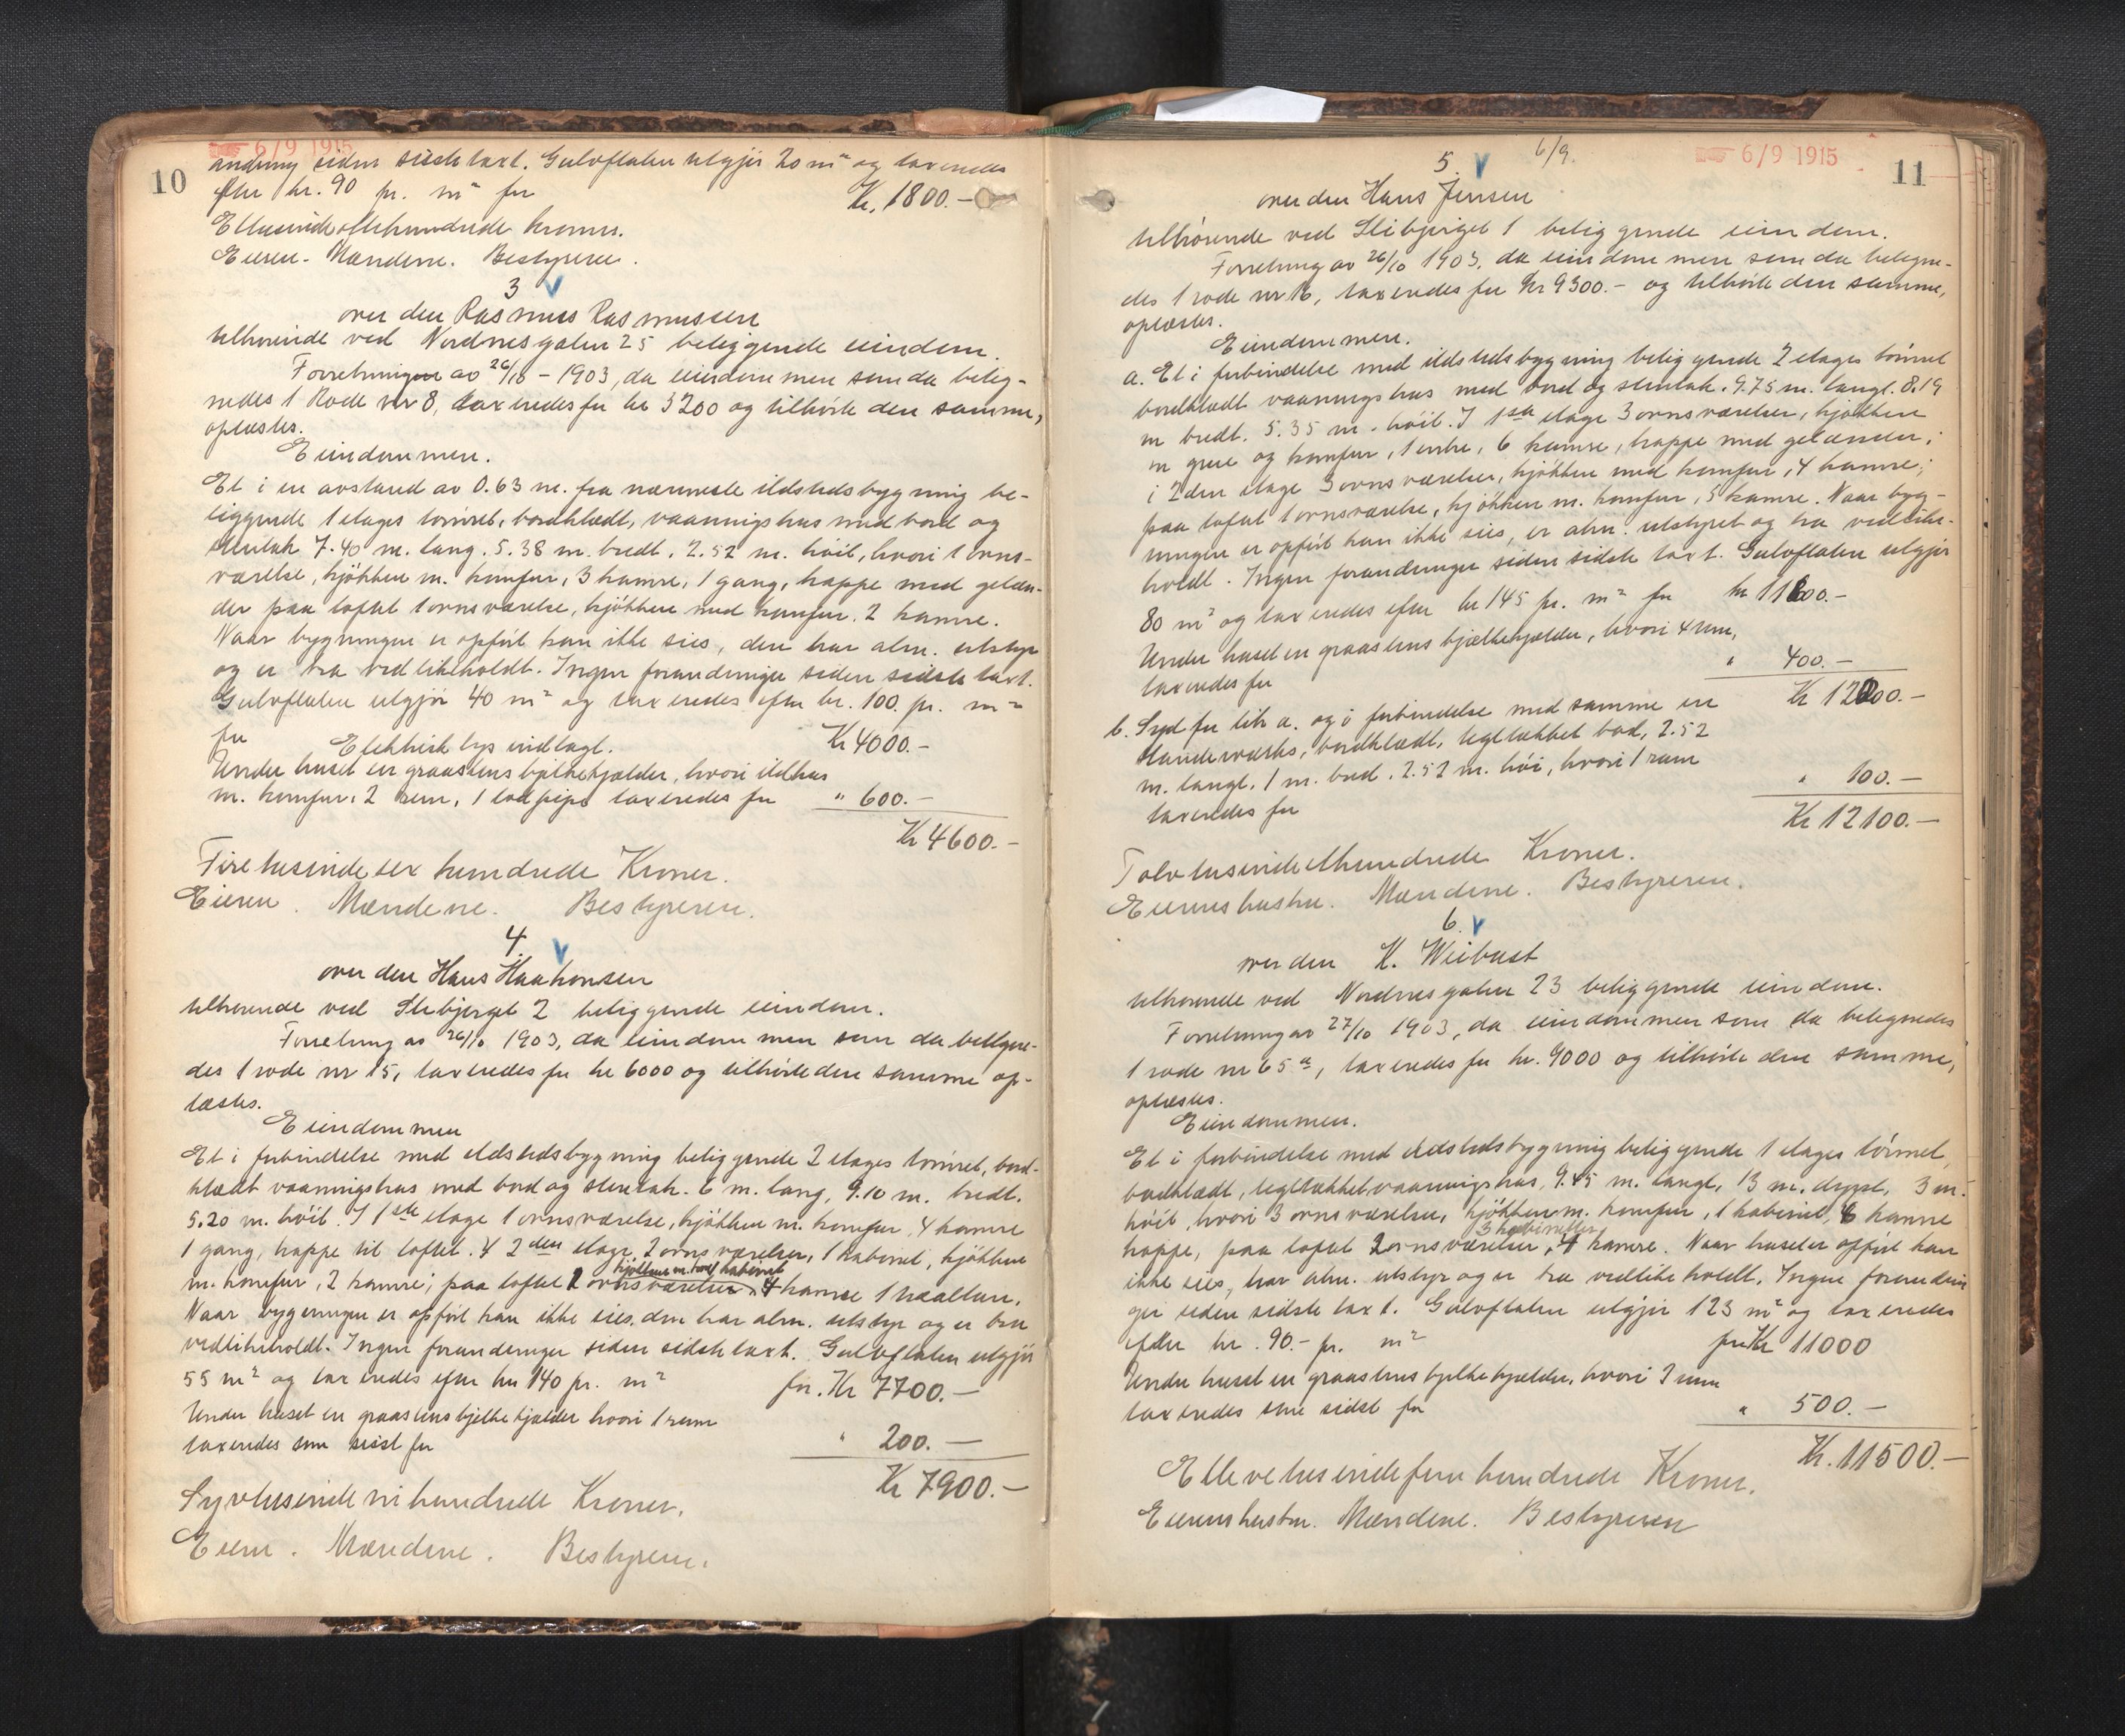 10
6/9 1915
andring siden sidste taxt. Gulvflaten utgjør 20 m² og taxeredes
efter kr. 90 pr. m² for Kr. 1800.-
Ettusindeottehundrede kroner.
Eieren. Mændene. Bestyreren.
3 V
over den Rasmus Rasmussen
tilhørende ved Nordnesgaten 25 beliggende eiendom.
Forretningen av 26/10 - 1903, da eiendommen som da beteg-
nedes 1 Rode nr 8, taxeredes for kr 3200 og tilhørte den samme,
oplæstes.
Eiendommen.
Et i en avstand av 0.63 m. fra nærmeste ildstedsbygning be-
liggende 1 etages tømret, bordklædt, vaaningshus med bord og
stentak 7.40 m. lang. 5.38 m. bredt. 2.52 m. høit, hvori 1 ovns-
værelse, kjøkken m. komfur, 3 kamre, 1 gang, trappe med gelæn-
der paa loftet 1 ovnsværelse, kjøkken med komfur. 2 kamre.
Naar bygningen er opført kan ikke sies, den har alm. utstyr
og er bra vedlikeholdt. Ingen forandringer siden sidste taxt.
Gulvflaten utgjør 40 m² og taxeredes efter kr. 100. pr. m²
for Elektrisk lys indlagt. Kr 4000.-
Under huset en graastens bjelkekjælder, hvori ildhus
m. komfur, 2 rum, 1 lodpipe taxeredes for " 600.-
Kr 4600.-
Fire tusinde sex hundrede Kroner.
Eieren. Mændene. Bestyreren.
4. V
over den Hans Haakonsen
tilhørende ved Stibjerget 2 beliggende eiendom.
Forretning av 26/10 1903, da eiendommen som da betegne-
des 1 rode nr 15, taxeredes for kr 6000 og tilhørte den samme op-
læstes.
Eiendommen
Et i forbindelse med ildstedsbygning beliggende 2 etages tømret, bord-
klædt vaaningshus med bord og stentak. 6 m. lang, 9.10 m. bredt.
5.20 m. høit. I 1ste etage 1 ovnsværelse, kjøkken m. komfur, 4 kamre
1 gang, trappe til loftet. I 2den etage 2 ovnsværelser, 1 kabinet, kjøkken
m. komfur, 2 kamre; paa loftet 1 ovnsværelse 4 kamre
Naar bygningen er opført kan ikke sies, den har alm. utstyr og er bra
vedlikeholdt. Ingen forandringer siden sidste taxt. Gulvflaten utgjør
55 m² og taxeredes efter kr 140 pr. m² for. Kr 7700.-
Under huset en graastens bjelkekjælder hvori 1 rum
taxeredes som sidst for " 200.-
Kr 7900.-
Syvtusinde nihundrede Kroner.
Eieren. Mændene. Bestyreren.
5. V 6/9.
6/9 1915
11
over den Hans Jensen
tilhørende ved Stibjerget 1 beliggende eiendom.
Forretning av 26/10 1903, da eiendommen som da betegne-
des 1 rode nr 16, taxeredes for Kr 9300.- og tilhørte den samme,
oplæstes.
Eiendommen.
a. Et i forbindelse med ildstedsbygning beliggende 2 etages tømret
bordklædt vaaningshus med bord og stentak. 9.75 m. langt. 8.19
m bredt. 5.35 m. høit. I 1ste etage 3 ovnsværelser, kjøkken
m grue og komfur, 1 entre, 6 kamre, trappe med gelænder;
i 2den etage 3 ovnsværelser, kjøkken med komfur, 4 kamre;
paa loftet 1 ovnsværelse, kjøkken m. komfur, 5 kamre. Naar byg-
ningen er opført kan ikke sies, er alm. utstyret og bra vedlike-
holdt. Ingen forandringer siden sidste taxt. Gulvflaten utgjør
80 m² og taxeredes efter kr 145 pr. m² for kr 11600.-
Under huset en graastens bjælkekjælder, hvori 4 rum,
taxeredes for " 400.-
Kr 12000.-
b. Syd for litr a. og i forbindelse med samme en
standerværks, bordklædt, tegltækket bod, 2.52
m. langt. 1 m. bred. 2.52 m. høi, hvori 1 rum
taxeredes for " 100.-
Kr 12100.-
Tolv tusindeethundrede Kroner.
Eierens hustru. Mændene. Bestyreren.
6. V
over den K. Weibust
tilhørende ved Nordnesgaten 23 beliggende eiendom.
Forretning av 27/10 1903, da eiendommen som da betegnedes
1 rode nr 65 a, taxeredes for kr. 9000 og tilhørte den samme,
oplæstes.
Eiendommen.
Et i forbindelse med ildstedsbygning beliggende 1 etages tømret,
bordklædt, tegltækket vaaningshus, 9.45 m. langt, 13 m. dypt, 3 m.
høit, hvori 3 ovnsværelser, kjøkken m. komfur, 1 kabinet, 6 kamre
3 kabinetter
trappe, paa loftet 2 ovnsværelser, 4 kamre. Naar huset er opført kan
ikke sies, har alm. utstyr og er bra vedlikeholdt. Ingen forandrin
ger siden sidste taxt. Gulvflaten utgjør 123 m² og taxeredes
efter kr. 90.- pr. m² for Kr 11000
Under huset en graastens bjelkekjælder, hvori 3 rum
taxeredes som sidst for " 500.-
Kr. 11500.-
Elleve tusindefem hundrede Kroner.
Eierens hustru. Mændene. Bestyreren